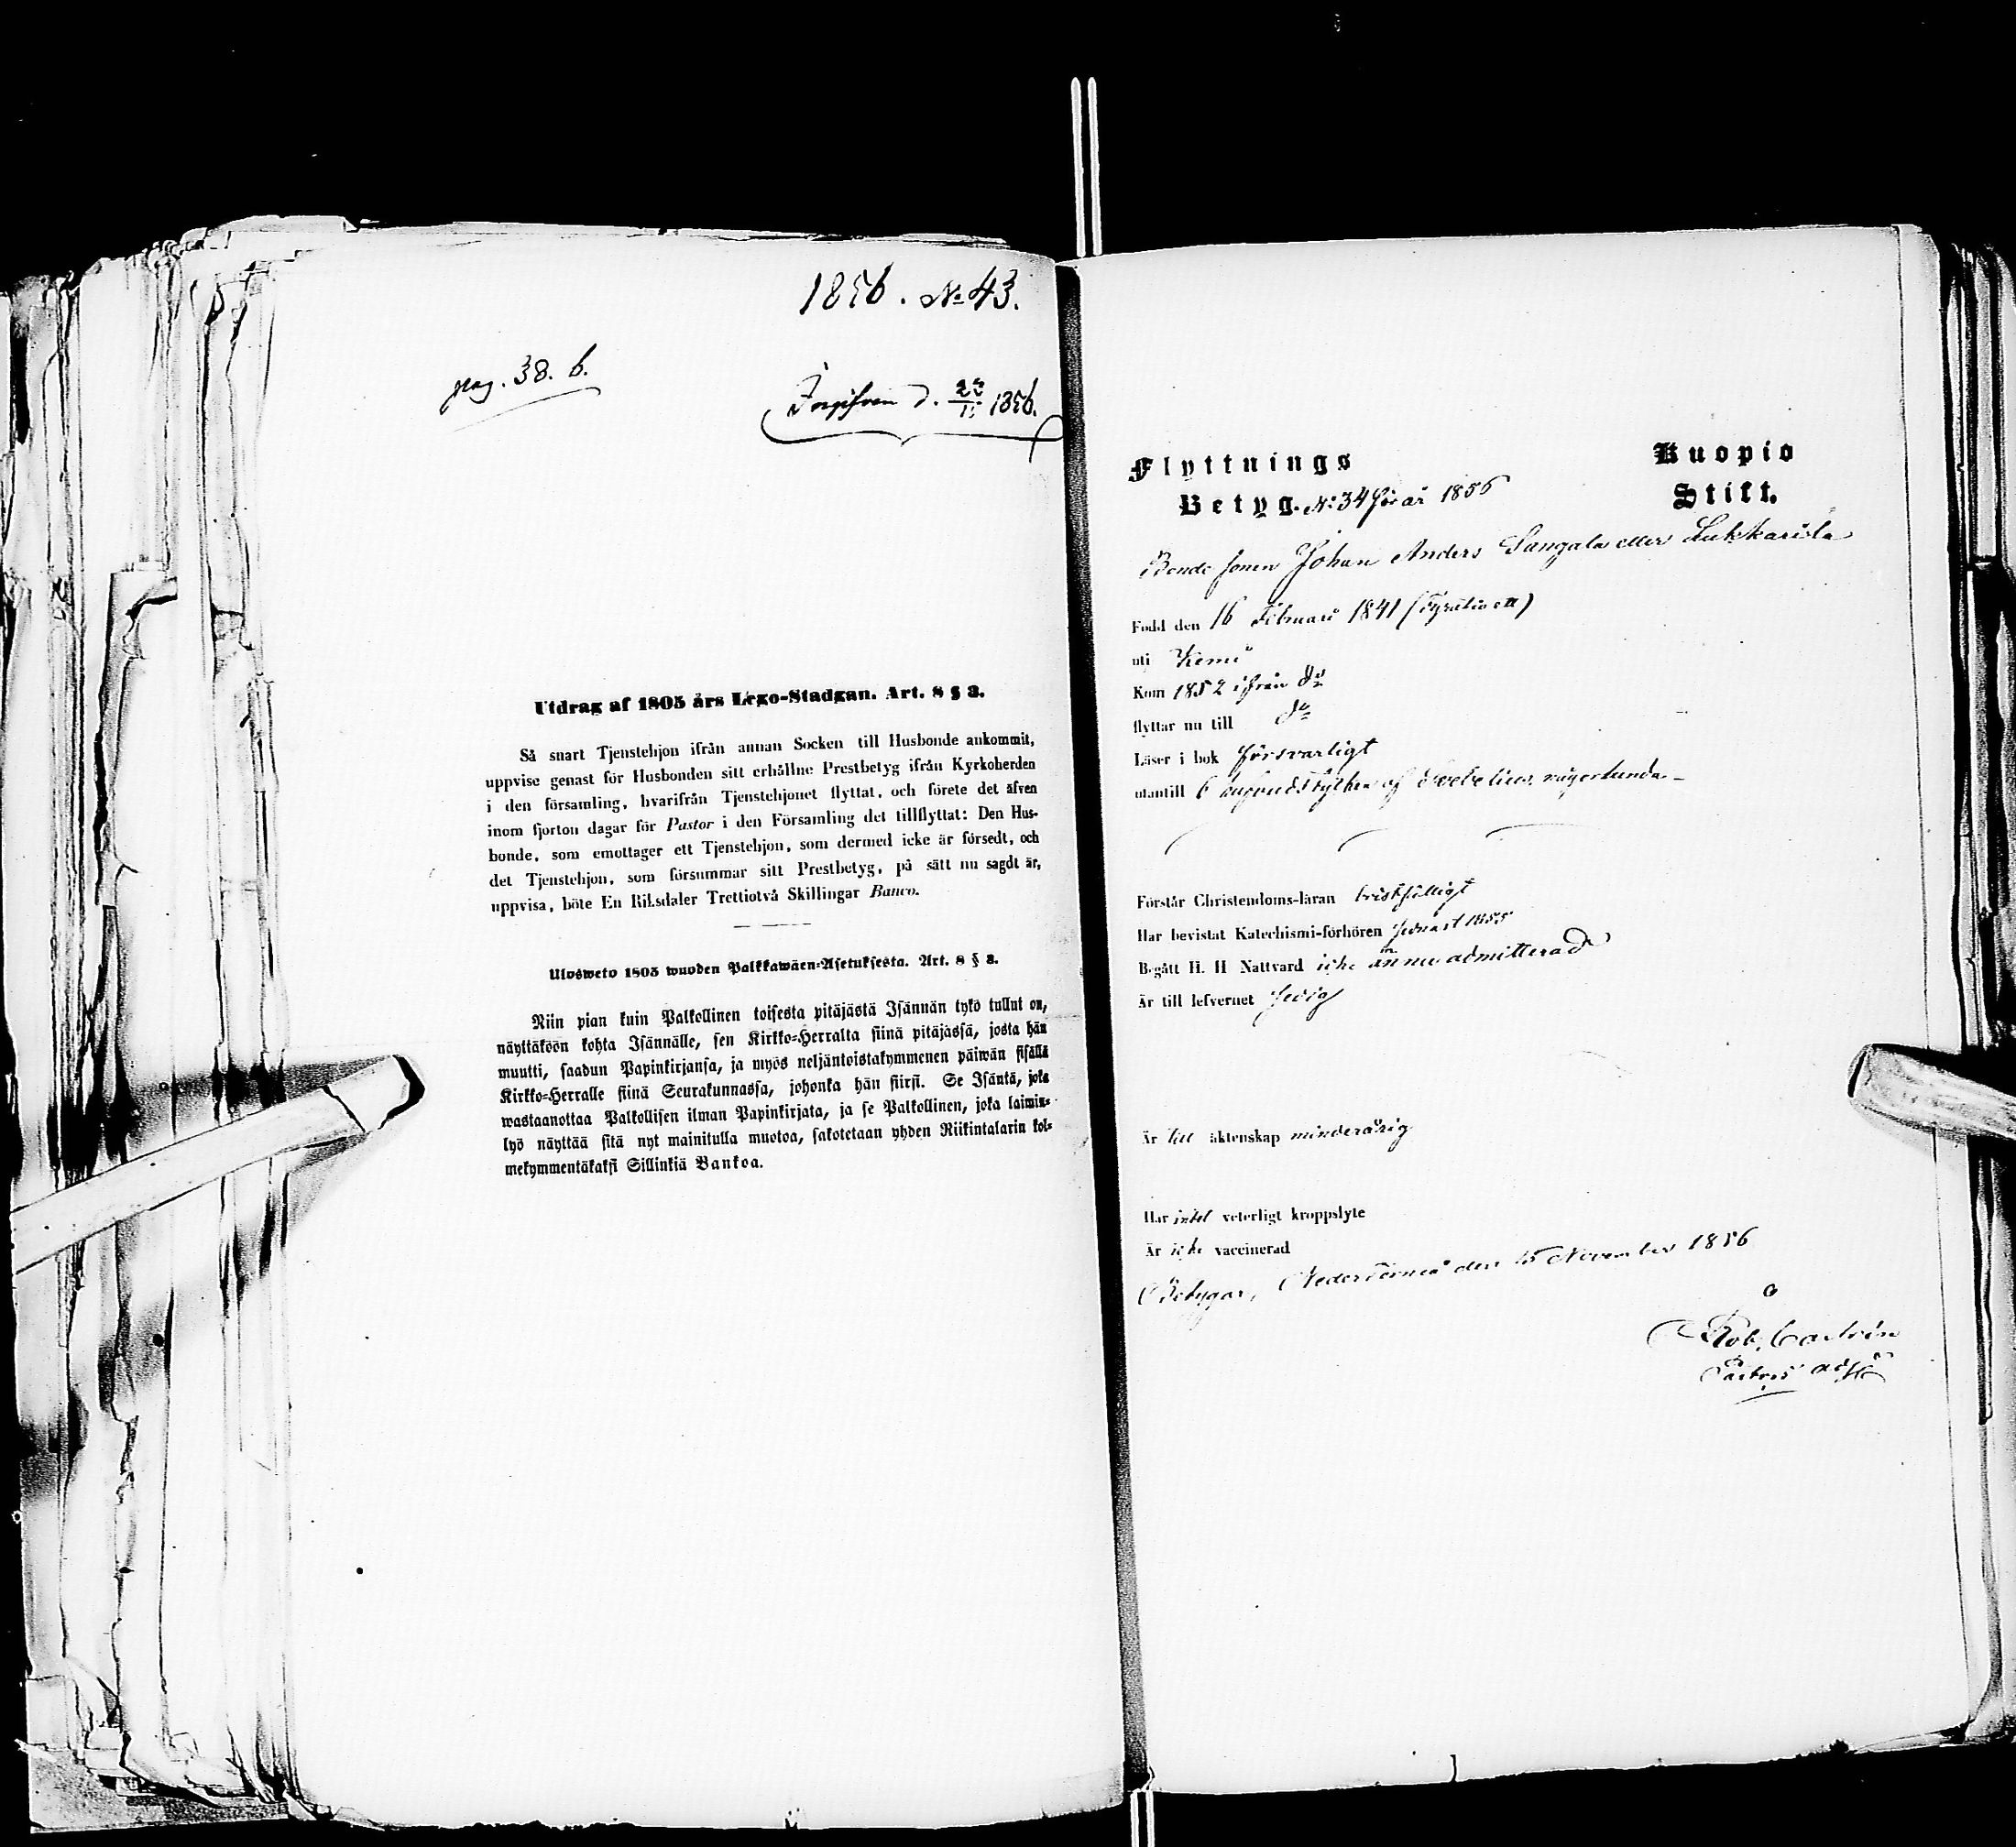 1856. No 43.
pag. 38. b.
Ingifven d. 1856.
Utdrag af 1805 års Lego-Stadgan. Art. 8 § 3.
Så snart Tjenstehjon ifrån annan Socken till Husbonde ankommit,
uppvise genast för Husbonden sitt erhållne Prestbetyg ifrån Kyrkoherden
i den församling, hvarifrån Tjenstehjonet flyttat, och förete det äfven
inom fjorton dagar för Pastor i den Församling det tillflyttat: Den Hus-
bonde, som emottager ett Tjenstehjon, som dermed icke är försedt, och
det Tjenstehjon, som försummar sitt Prestbetyg, på sätt nu sagdt är,
uppvisa, böte En Riksdaler Trettiotvå Skillingar Banco.
Ulosweto 1805 wuoden Palkkawäen-Asetuksesta. Art. 8 § 3.
Niin pian kuin Palkollinen toisesta pitäjästä Isännän tykö tullut on,
näyttäköön kohta Isännälle, sen Kirkko-Herralta siinä pitäjässä, josta hän
muutti, saadun Papinkirjansa, ja myös neljäntoistakymmenen päiwän sisällä
Kirkko-Herralle siinä Seurakunnassa, johonka hän siirsi. Se Isäntä, joka
wastaanottaa Palkollisen ilman Papinkirjata, ja se Palkollinen, joka laimin-
lyö näyttää sitä nyt mainitulla muotoa, sakotetaan yhden Riikintalarin kol-
mekymmentäkaksi Sillinkiä Bankoa.
Flyttnings Kuopio
Betyg. No 34 för år 1856 Stift.
Bonde sonen Johan Anders Sangala eller Lukkarila
Född den 16 Februari 1841 (fyratio ett)
uti Kemi
Kom 1852 ifrån do
flyttar nu till do
Läser i bok försvarligt
utantill 6 hufvudstycken af Svebelius
Förstår Christendoms-läran bristfälligt
Har bevistat Katechismi-förhören senast 1855
Begått H. H Nattvard icke ännu admitterad
Är till lefvernet sedig
Är till äktenskap minderårig
Har intet veterligt kroppslyte
Är icke vaccinerad
Betygar, Neder Torneå den 15 November 1856
Rob. Castrén
Pastors adj